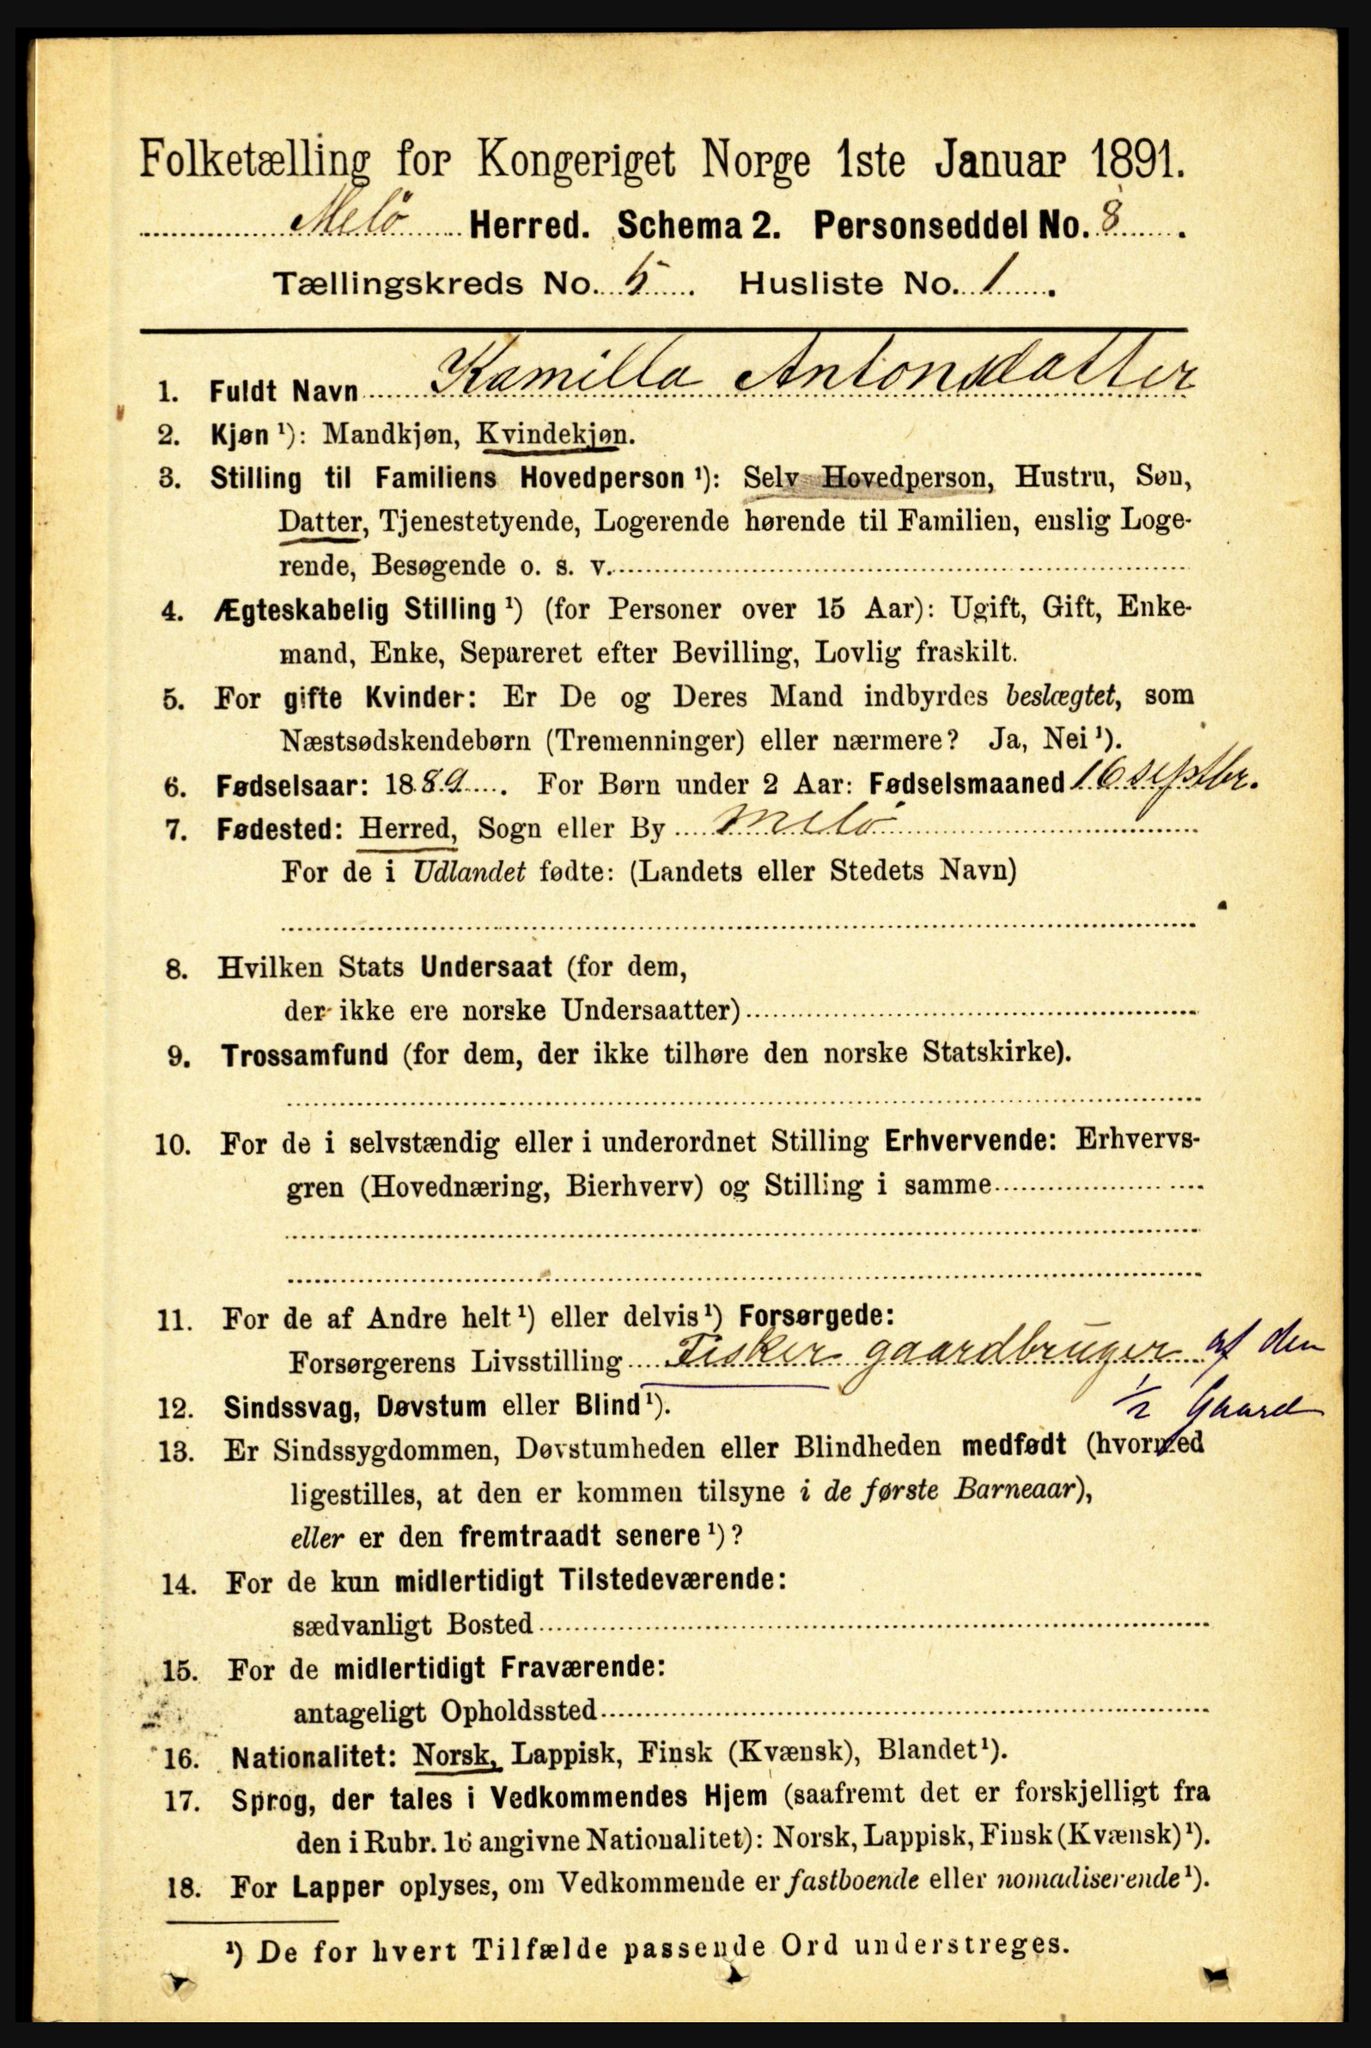 Folketælling for Kongeriget Norge 1ste Januar 1891.
Melö Herred. Schema 2. Personseddel No. 8.
Tællingskreds No. 5. Husliste No. 1.
1. Fuldt Navn Kamilla Antonsdatter
2. Kjøn ¹): Mandkjøn, Kvindekjøn.
3. Stilling til Familiens Hovedperson ¹): Selv Hovedperson, Hustru, Søn,
Datter, Tjenestetyende, Logerende hørende til Familien, enslig Loge-
rende, Besøgende o. s. v.
4. Ægteskabelig Stilling ¹) (for Personer over 15 Aar): Ugift, Gift, Enke-
mand, Enke, Separeret efter Bevilling, Lovlig fraskilt.
5. For gifte Kvinder: Er De og Deres Mand indbyrdes beslægtet, som
Næstsødskendebørn (Tremenninger) eller nærmere? Ja, Nei ¹).
6. Fødselsaar: 1889. For Børn under 2 Aar: Fødselsmaaned 16 septbr.
7. Fødested: Herred, Sogn eller By Melö
For de i Udlandet fødte: (Landets eller Stedets Navn)
8. Hvilken Stats Undersaat (for dem,
der ikke ere norske Undersaatter)
9. Trossamfund (for dem, der ikke tilhøre den norske Statskirke).
10. For de i selvstændig eller i underordnet Stilling Erhvervende: Erhvervs-
gren (Hovednæring, Bierhverv) og Stilling i samme
11. For de af Andre helt ¹) eller delvis ¹) Forsørgede:
Forsørgerens Livsstilling Fisker gaardbruger af den
1/2 Gaard
12. Sindssvag, Døvstum eller Blind ¹).
13. Er Sindssygdommen, Døvstumheden eller Blindheden medfødt (hvormed
ligestilles, at den er kommen tilsyne i de første Barneaar),
eller er den fremtraadt senere ¹)?
14. For de kun midlertidigt Tilstedeværende:
sædvanligt Bosted
15. For de midlertidigt Fraværende:
antageligt Opholdssted
16. Nationalitet: Norsk, Lappisk, Finsk (Kvænsk), Blandet ¹).
17. Sprog, der tales i Vedkommendes Hjem (saafremt det er forskjelligt fra
den i Rubr. 16 angivne Nationalitet): Norsk, Lappisk, Finsk (Kvænsk) ¹).
18. For Lapper oplyses, om Vedkommende er fastboende eller nomadiserende ¹).
¹) De for hvert Tilfælde passende Ord understreges.